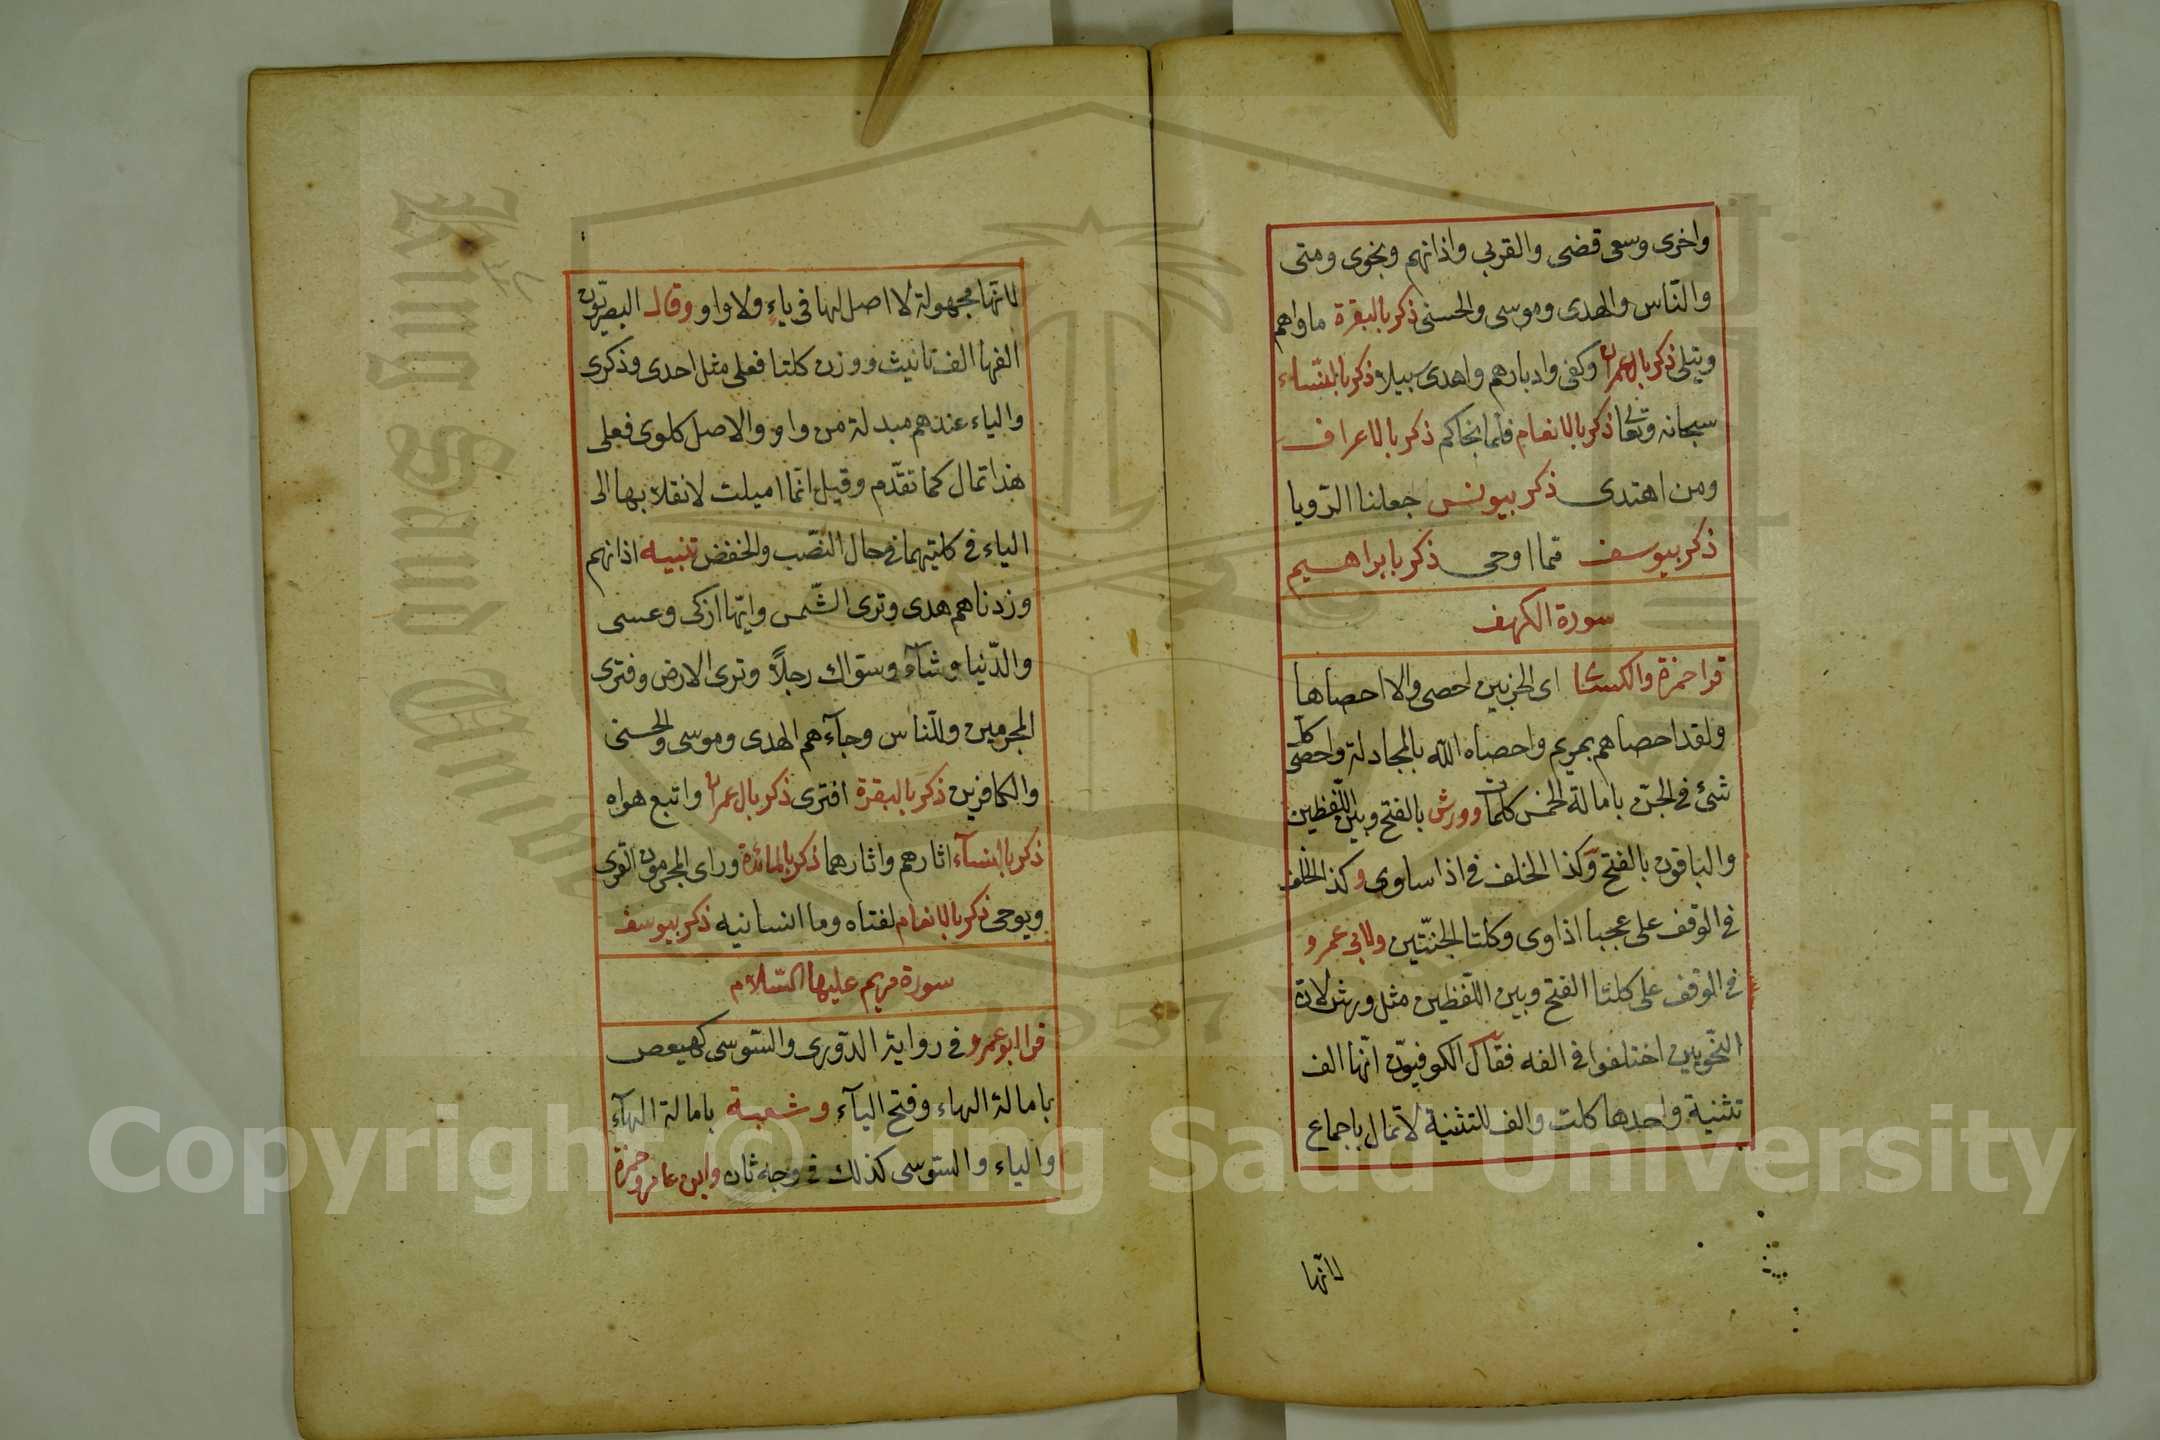 واخرى وسعى قضى والقربى واذانهم ونجوى ومتى
والنّاس والهدى وموسى والحسنى ذكر بالبقرة ماواهم
ويتلى ذكر بال عمران وكفى وادبارهم واهدى سبيلا ذكر بالنّساء
سبحانه وتعا ذكر بالانعام فلما نجاكم ذكر بالاعراف
ومن اهتدى ذكر بيونس جعلنا الرّويا
ذكر بيوسف مما اوحى ذكر بابراهيم
سورة الكهف
قرا حمزة والكسائ اى الحزبين احصى والا احصاها
ولقد احصاهم بمريم واحصاه الله بالمجادلة واحصى كل
شئ فى الجنّ بامالة الخمس كلمات وورش بالفتح وبين اللّفظين
والباقون بالفتح وكذا الخلف فى اذا ساوى وكذا الخلف
فى الوقف على عجبا اذ اوى وكلتا الجنّتين ولابى عمرو
فى الوقف على كلتا الفتح وبين اللفظين مثل ورش لان
النّحويين اختلفوا فى الفه فقال الكوفيّون انّها الف
تثنية واحدها كلت والف التثنية لا تمال باجماع
لانّها
لانّها مجهولة لا اصل لها فى ياء ولا واو وقال البصريّون
الفها الف تانيث ووزن كلتا فعلى مثل احدى وذكرى
والياء عندهم مبدلة من واو والاصل كلوى فعلى
هذا تمال كما تقدّم وقيل انّما اميلت لانقلابها الى
الياء فى كلتيهما فى حال النّصب والخفض تنبيه اذانهم
وزدناهم هدى وترى الشّمس وايّها ازكى وعسى
والدّنيا وشآء وسوّاك رجلاً وترى الارض وفترى
المجرمين وللنّاس وجآءهم الهدى وموسى والحسنى
والكافرين ذكر بالبقرة افترى ذكر بال عمران واتبع هواه
ذكر بالنسآء اثارهم واثارهما ذكر بالمائدة وراى المجرمون القرى
ويوحى ذكر بالانعام لفتاه وما انسانيه ذكر بيوسف
سورة مريم عليها السّلام
قرا ابو عمرو فى رواية الدّورى والسّوسى كهيعص
بامالة الهاء وفتح اليآء وشعبة بامالة الهآء
والياء والسّوسى كذلك فى وجه ثان وابن عامر وحمزة
Copyright © King Saud University
King Saud University
1957